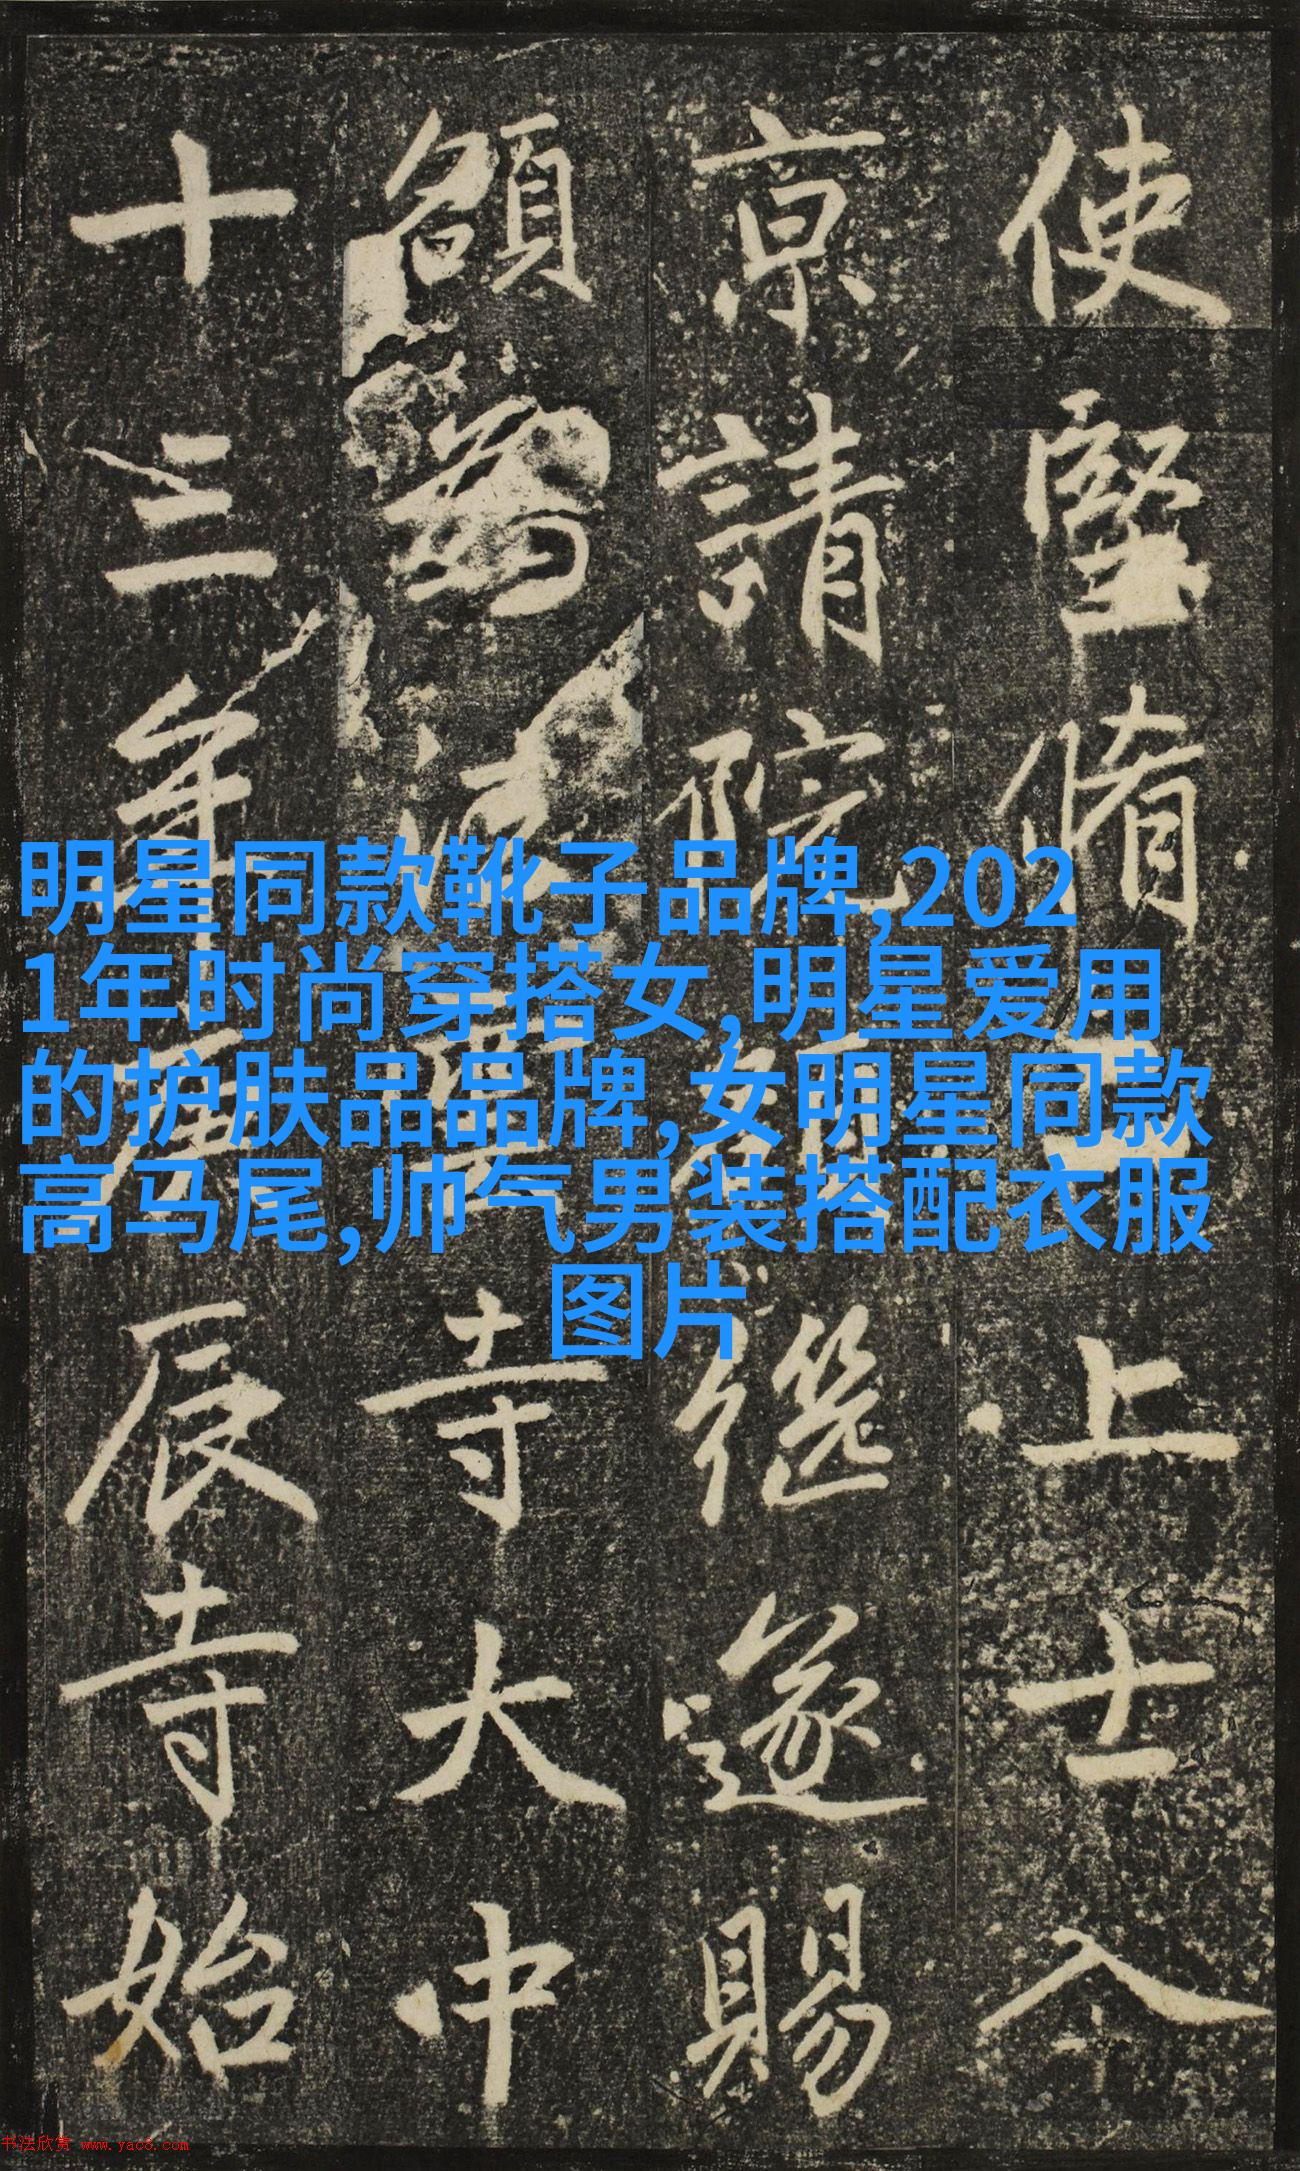 使堅脩上士入
京請院繼遂賜
額爲寺大中
十三年辰寺始
明星同款靴子品牌,202
1年时尚穿搭女,明星爱用
的护肤品品牌,女明星同款
高马尾,帅气男装搭配衣服
图片
书法欣赏 www.yac8.com